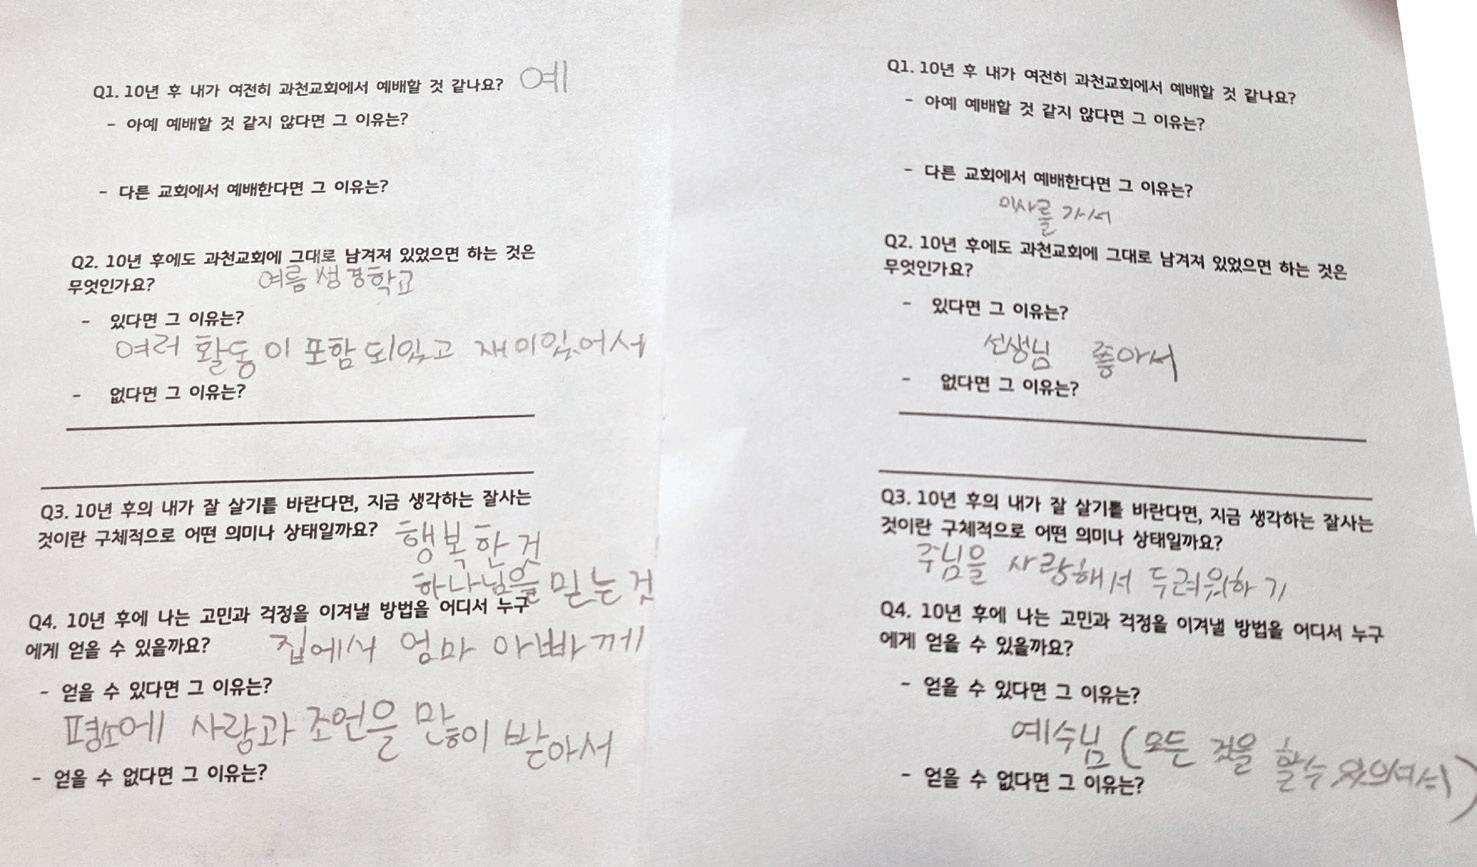 Q1. 10년 후 내가 여전히 과천교회에서 예배할 것 같나요? 예
- 아예 예배할 것 같지 않다면 그 이유는?
- 다른 교회에서 예배한다면 그 이유는?
Q2. 10년 후에도 과천교회에 그대로 남겨져 있었으면 하는 것은
무엇인가요? 여름 성경학교
- 있다면 그 이유는?
여러 활동이 포함되있고 재미있어서
- 없다면 그 이유는?
Q3. 10년 후의 내가 잘 살기를 바란다면, 지금 생각하는 잘사는
것이란 구체적으로 어떤 의미나 상태일까요? 행복한것
하나님을 믿는 것
Q4. 10년 후에 나는 고민과 걱정을 이겨낼 방법을 어디서 누구
에게 얻을 수 있을까요? 집에서 엄마 아빠께
- 얻을 수 있다면 그 이유는?
평소에 사랑과 조언을 많이 받아서
- 얻을 수 없다면 그 이유는?
Q1. 10년 후 내가 여전히 과천교회에서 예배할 것 같나요?
- 아예 예배할 것 같지 않다면 그 이유는?
- 다른 교회에서 예배한다면 그 이유는?
이사를 가서
Q2. 10년 후에도 과천교회에 그대로 남겨져 있었으면 하는 것은
무엇인가요?
- 있다면 그 이유는?
선생님 좋아서
- 없다면 그 이유는?
Q3. 10년 후의 내가 잘 살기를 바란다면, 지금 생각하는 잘사는
것이란 구체적으로 어떤 의미나 상태일까요?
주님을 사랑해서 두려워하기
Q4. 10년 후에 나는 고민과 걱정을 이겨낼 방법을 어디서 누구
에게 얻을 수 있을까요?
- 얻을 수 있다면 그 이유는?
예수님 (모든 것을 할수
- 얻을 수 없다면 그 이유는?